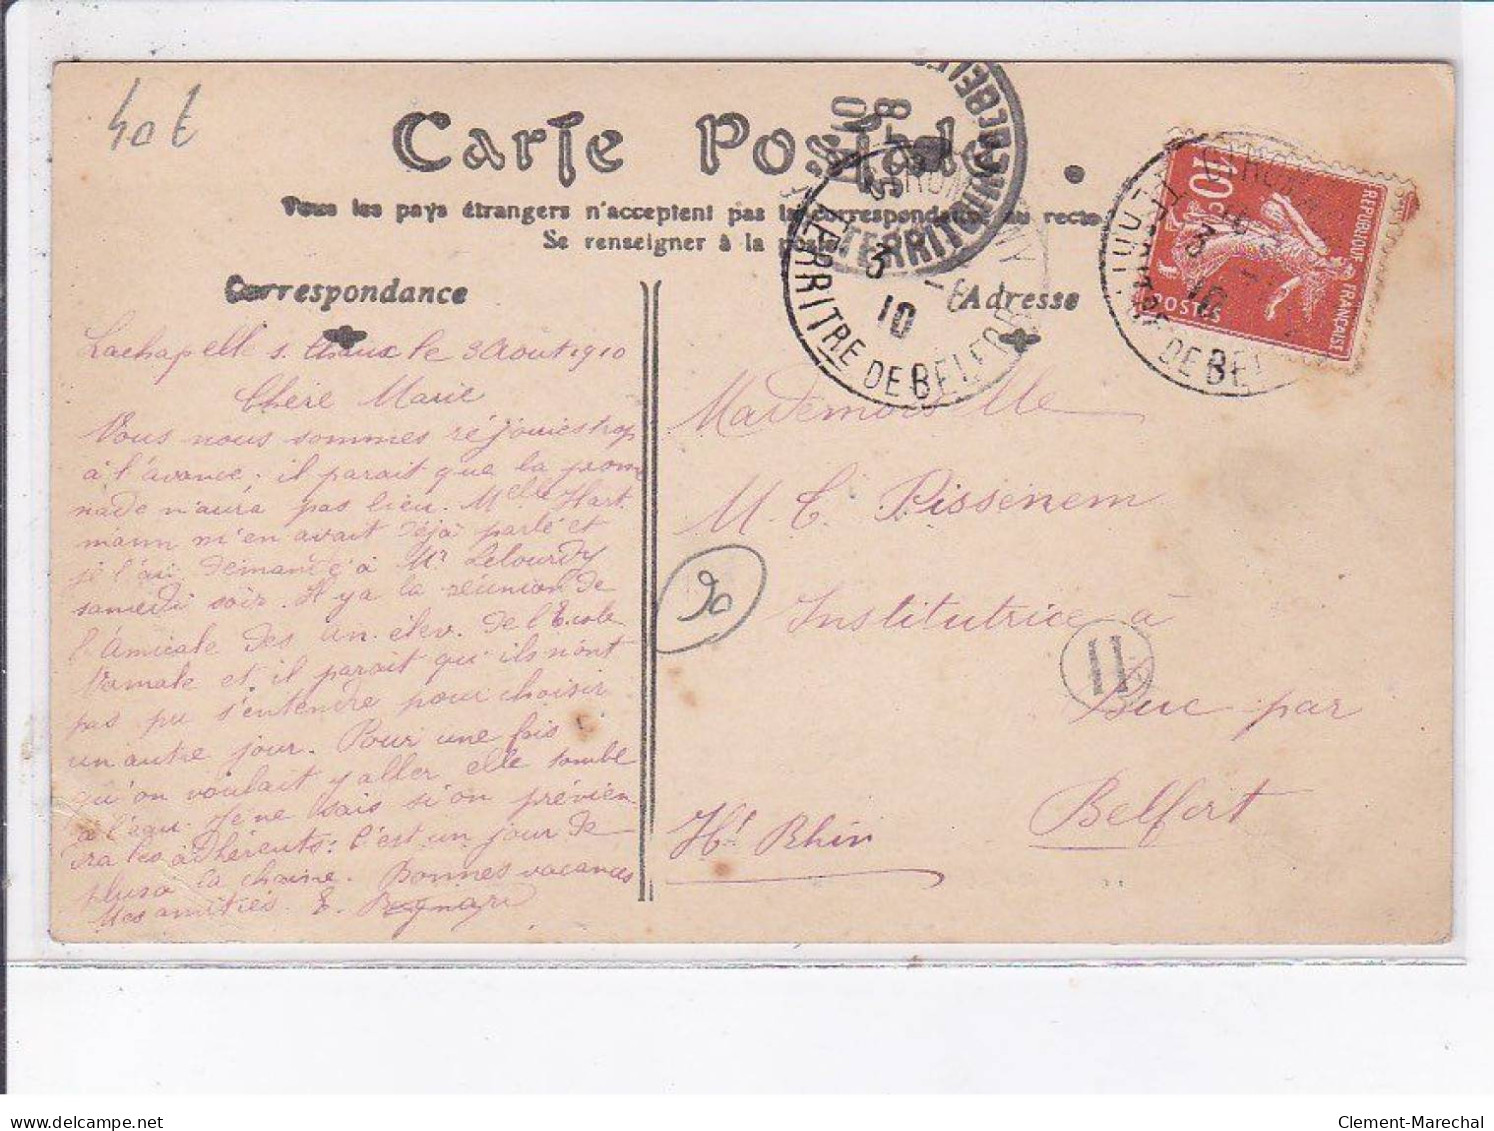 40t
Carte Postale
Tous les pays étrangers n'acceptent pas la correspondance au recto
Se renseigner à la poste
Correspondance
Lachapelle s. Chaux le 3 Août 1910
Chère Marie
Nous nous sommes réjouies trop
à l'avance; il parait que la prome
nade n'aura pas lieu. Melle Hart
mann m'en avait déjà parlé et
je l'ai demandé à Mr Lelourdy
samedi soir. Il y a la réunion de
l'Amicale des an. élev. de l'Ecole
Normale et il parait qu'ils n'ont
pas pu s'entendre pour choisir
un autre jour. Pour une fois
qu'on voulait y aller elle tombe
à l'eau. Je ne sais si on prévien
dra les adhérents: C'est un jour de
plus à la chaine. Bonnes vacances
Mes amitiés. E. Begnard
Adresse
Mademoiselle
M. C. Pissenem
Institutrice à
Buc par
Belfort
Ht Rhin
20
11
GIROMAGNY
TERRITRE DE BELFORT
3
8
10
TERRITOIRE
10c
RÉPUBLIQUE FRANÇAISE
POSTES
3
10
DE BEL
Clement-Marechal